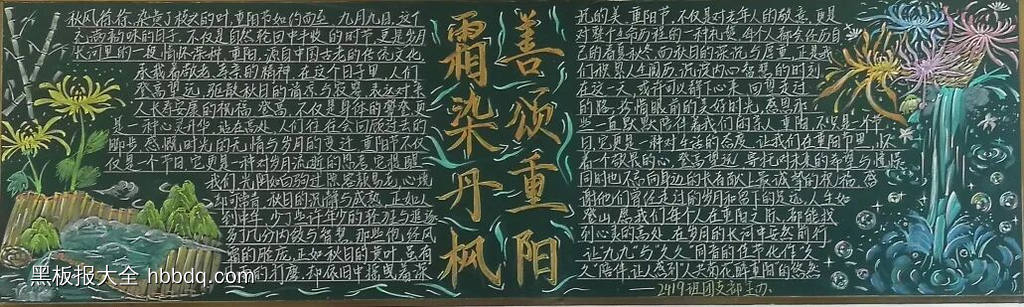 秋风徐徐，染黄了枝头的叶，重阳节如约而至。九月九日，这个
充满韵味的日子，不仅是自然轮回中丰收的时节，更是岁月
长河里的一段情怀深种。重阳，源自中国古老的传统文化，
承载着敬老、尊亲的精神，在这个日子里，人们
登高望远，驱散秋日的
人长寿安康的祝福。登高，不仅是身体的攀登，更
是一种心灵升华，站在高处，人们往往会回顾过去的
脚步，感慨时光的无情与岁月的变迁。重阳不仅
仅是一个节日，它更是一种对岁月流逝的思考，它提醒
我们，光阴如白驹过隙，容颜易老，心境
却可如秋日的沉静与成熟，正如人
到中年，少了些许年少的轻狂与追逐，
多了几分内敛与智慧。那些饱经风
霜的脸庞，正如秋日的黄叶，虽有
却依旧中摇曳着深
霜染丹枫
善颂重阳
远的美。重阳节，不仅是对老年人的敬意，更是
对整个生命历程的一种礼赞。每个人都会经历自
己的春夏秋冬，而秋日的深沉与厚重，正是我
们积累人生阅历、沉淀内心智慧的时刻。
在这一天，或许可以静下心来，回望走过
的路，珍惜眼前的美好时光，感恩那
些一直默默陪伴着我们的亲人。重阳，不只是一个节
日，它更是一种对生活的态度，让我们在重阳节里，怀
着个敬畏的心，登高望远，寄托对未来的希望与憧憬，
同时也不忘向身边的长者献上最诚挚的祝福，感
谢他们曾经走过的岁月和留下的足迹。人生如
登山，愿我们每个人在重阳之际，都能找
到心灵的高处，在岁月的长河中安然前行，
让“九九”与“久久”同音的佳节化作“久
久”陪伴，让
——2419班团支部主办
黑板报大全 hbbdq.com